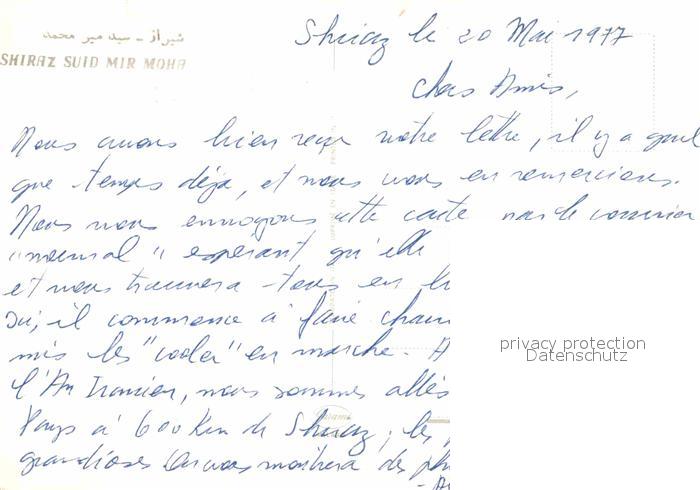 شیراز - سید میر محمد
SHIRAZ SUID MIR MOHA
Shiraz le 20 Mai 1977
Chers Amis,
Nous avons bien reçu votre lettre, il y a quel
que temps déjà, et nous vous en remercions.
Nous vous envoyons cette carte par le courrier
"normal" espérant qu'elle
et vous trouvera tous en
Ici, il commence à faire chau
mis les "cooler" en marche. A
l'An Iranien, nous sommes allés
Pays à 600 Km de Shiraz; les
grandioses. On vous montrera des ph
privacy protection
Datenschutz